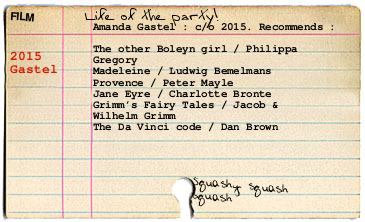 FILM
Life of the party!
Amanda Gastel : c/o 2015. Recommends :
2015
Gastel
The other Boleyn girl / Philippa
Gregory
Madeleine / Ludwig Bemelmans
Provence / Peter Mayle
Jane Eyre / Charlotte Bronte
Grimm's Fairy Tales / Jacob &
Wilhelm Grimm
The Da Vinci code / Dan Brown
Squashy squash
squash